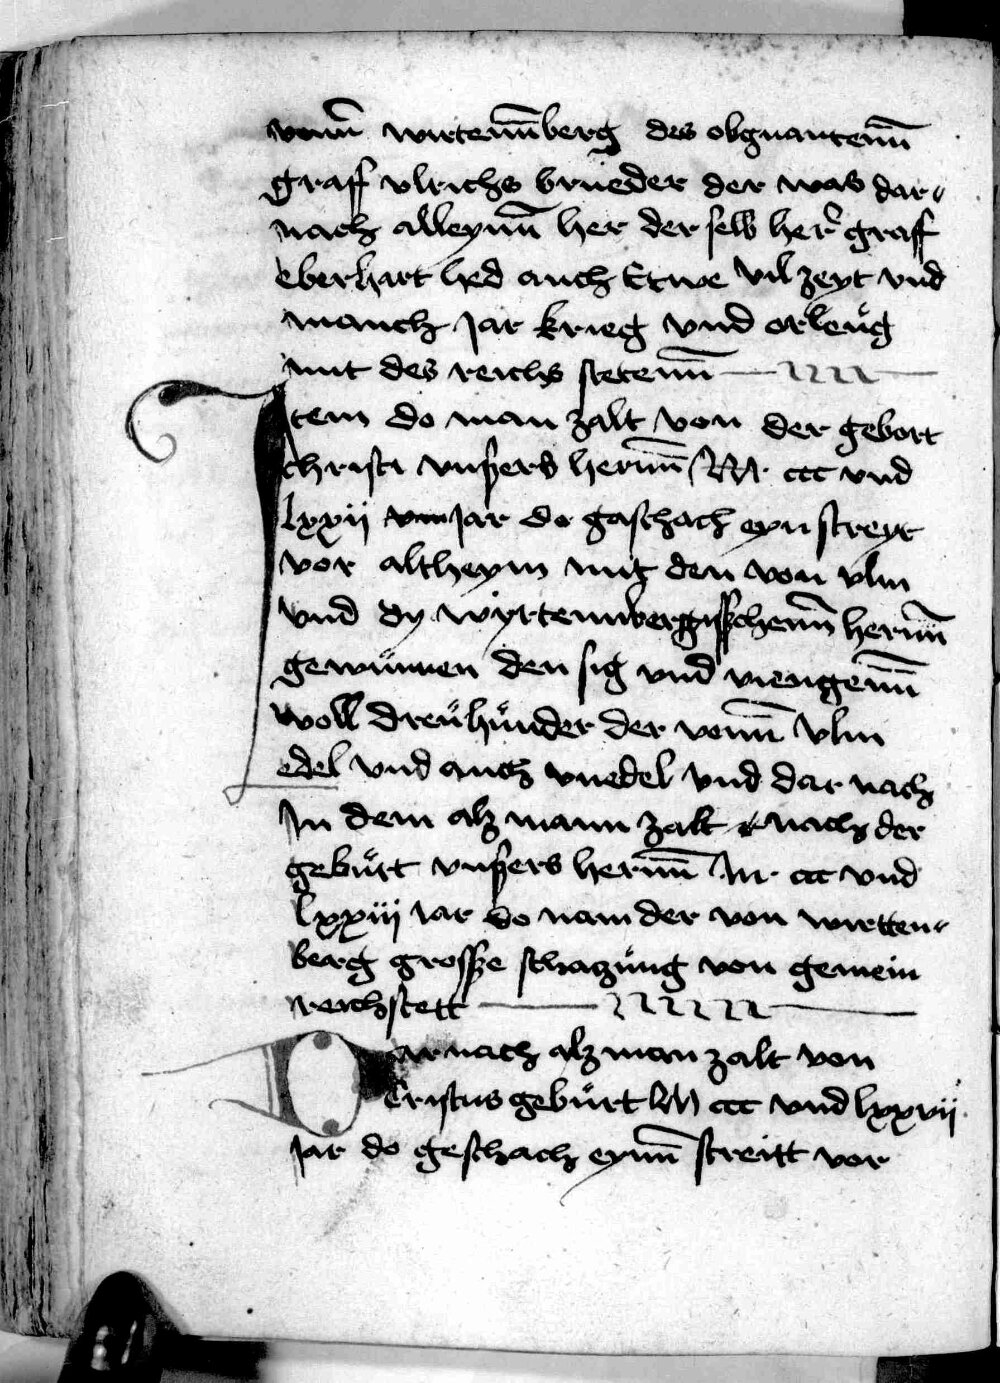 vonn̄ wirtenn̄berg des obgnantenn̄
graff vlrichs brueder der was dar⸗
nach alleynn̄ her der selb her̄ graff
eberhart hed auch Etwe vil zeyt vnd
manch Jar krieg vnd orleug
mit des reichs stetenn̄
Item do man zalt von der gebort
christi vnsers hernn̄ M ccc vnd
lxxii Jar do gaschach eyn streyt
vor altheym mit den von vlm
vnd dy wyrtennbergisschenn̄ hernn̄
gewunnen den sig vnd viengenn̄
woll dreuhunder der vonn̄ vlm
edel vnd auch vnedel vnd dar nach
In dem alz mann zalt nach der
geburt vnsers hernn̄ M ccc vnd
lxxiii iar do nam der von wirtten⸗
berg grosse schaczung von gemein
reichstett
Darnach alz man zalt von
Cristus geburt M ccc vnd lxxvii
Jar do geschach eynn̄ streitt vor